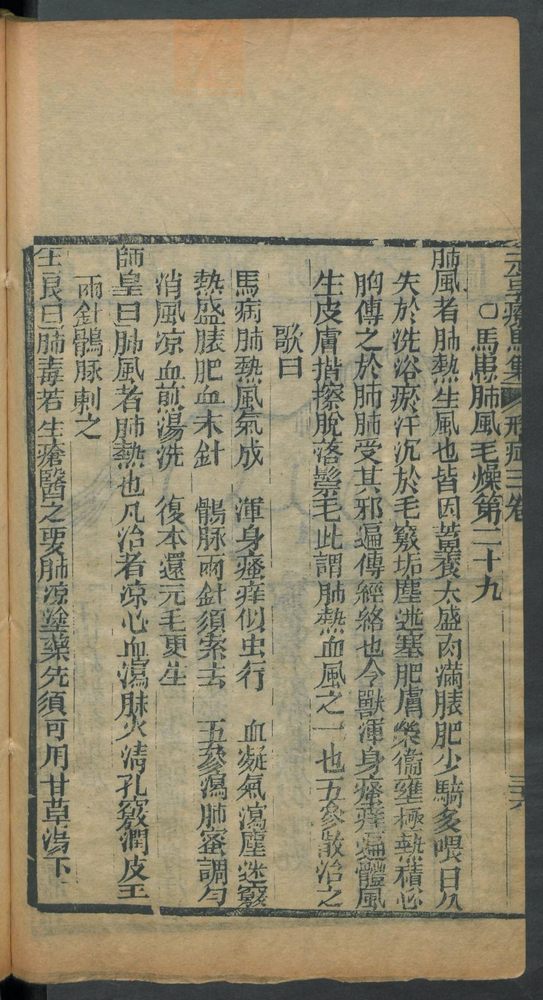 元亨療馬集 形症三卷 三六
○馬患肺風毛燥第二十九
肺風者肺熱生風也皆因蓄養太盛肉滿膘肥少騎多喂日久
失於洗浴瘀汗沉於毛竅垢塵迷塞肥膚榮衞壅極熱積心
胸傳之於肺肺受其邪遍傳經絡也令獸渾身瘙痒遍體風
生皮膚揩擦脫落鬃毛此謂肺熱血風之一也五參散治之
歌曰
馬病肺熱風氣成 渾身瘙痒似虫行 血凝氣瀉塵迷竅
熱盛膘肥血未針 鶻脉兩針須索去 五參瀉肺蜜調勻
消風凉血煎湯洗 復本還元毛更生
師皇曰肺風者肺熱也凡治者凉心血瀉肺火清孔竅潤皮毛
兩針鶻脉刺之
王良曰肺毒若生瘡醫之要肺凉塗藥先須可用甘草湯下